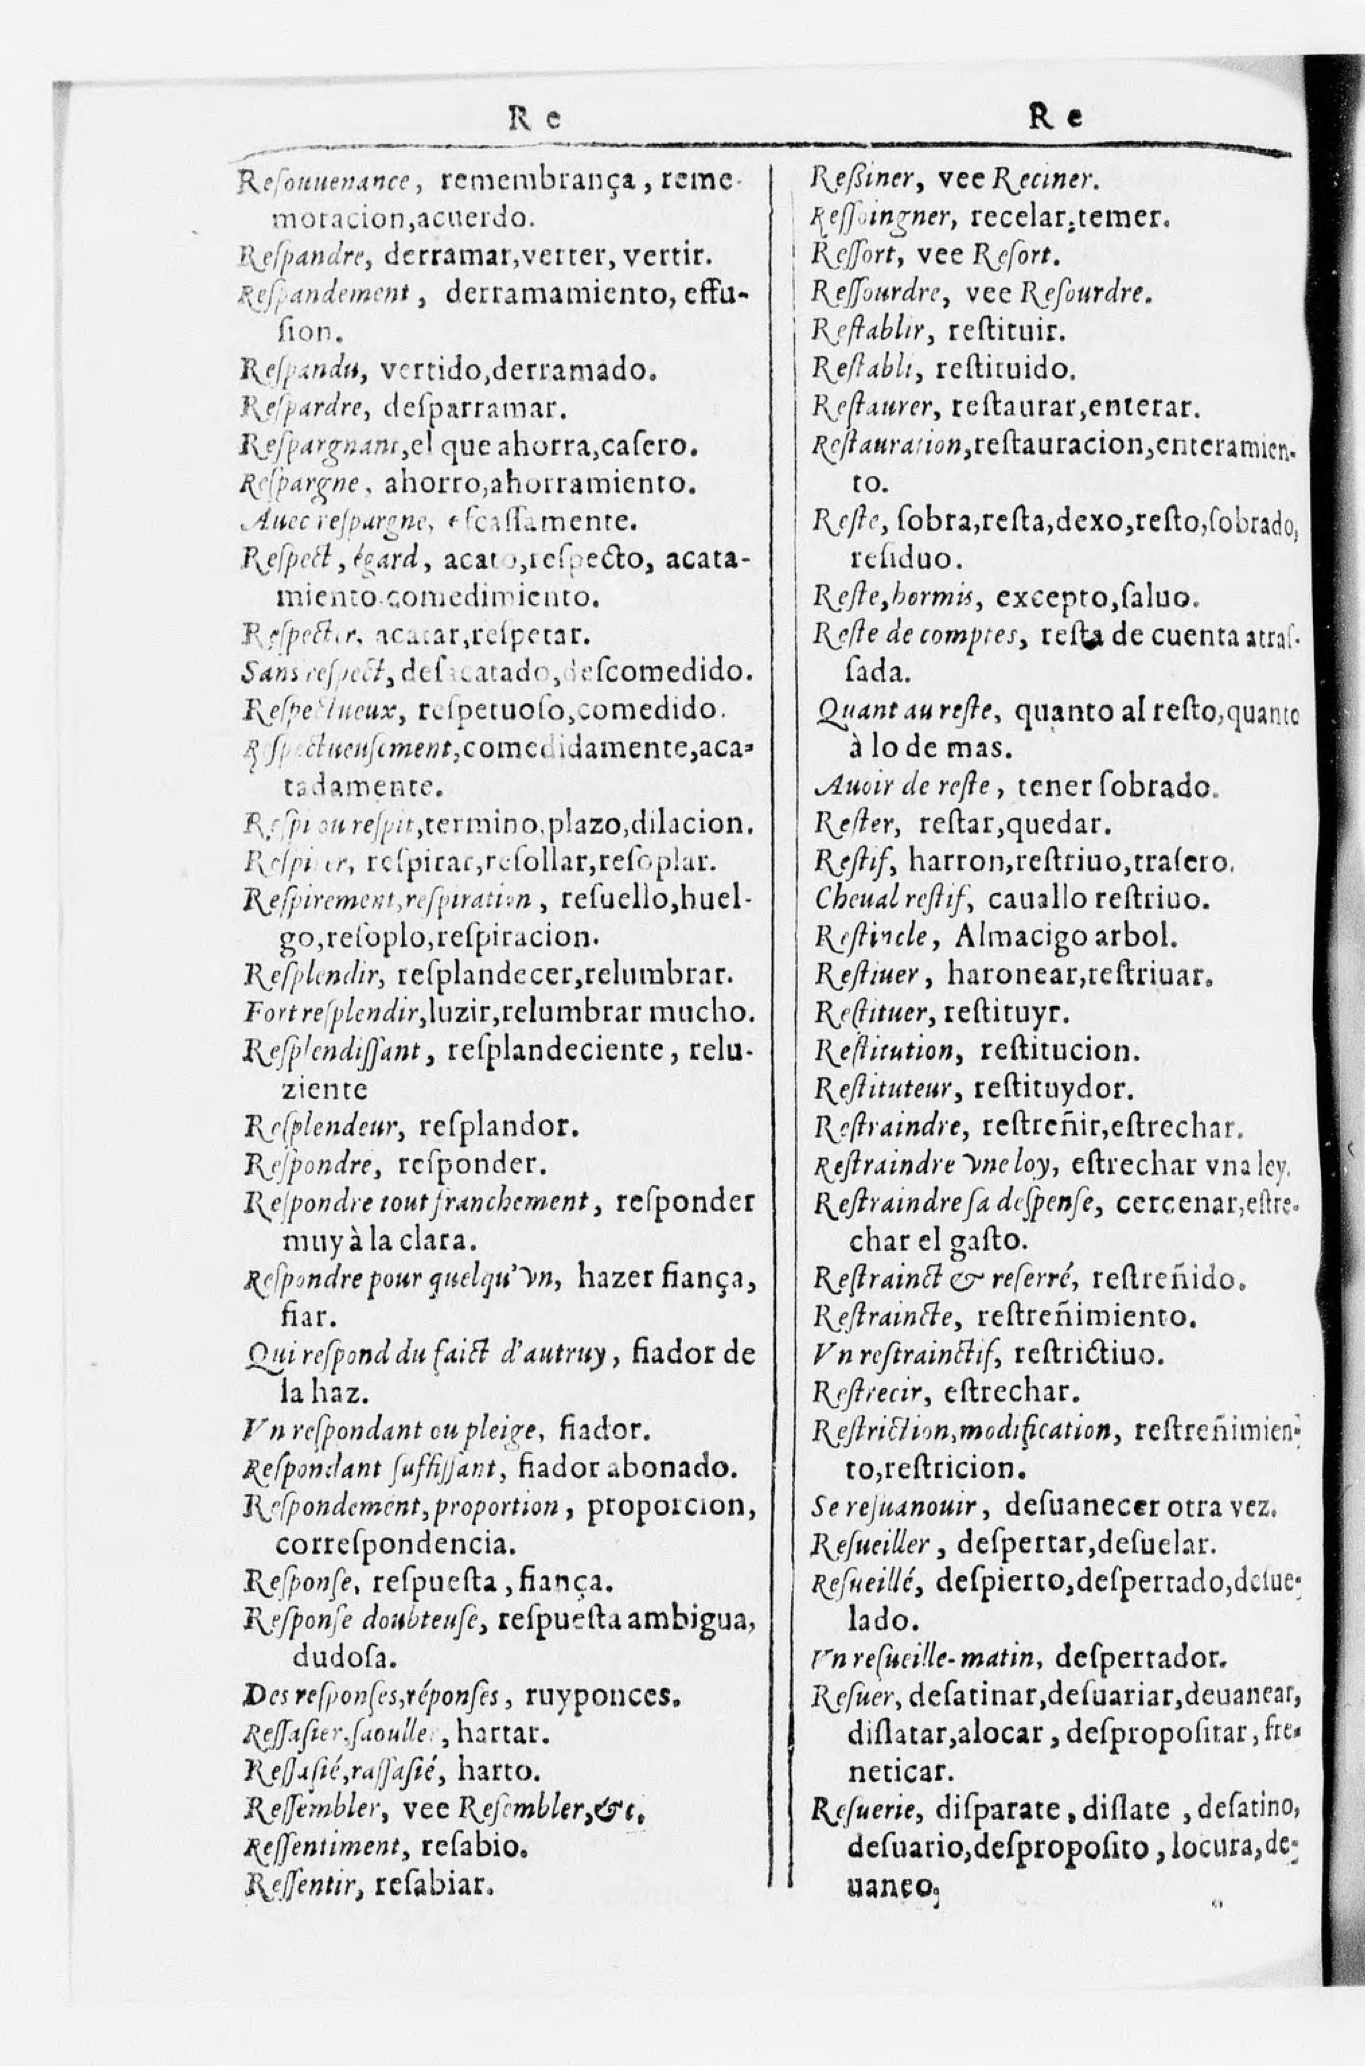 Re
Reſouuenance, remembrança, reme-
moracion,acuerdo.
Reſpandre, derramar,verter, vertir.
Reſpandement, derramamiento, effu-
ſion.
Reſpandu, vertido,derramado.
Reſpardre, deſparramar.
Reſpargnant,el que ahorra,caſero.
Reſpargne, ahorro,ahorramiento.
Auec reſpargne, eſcaſſamente.
Reſpect, égard, acato,reſpecto, acata-
miento.comedimiento.
Reſpecter, acatar,reſpetar.
Sans reſpect, deſacatado,deſcomedido.
Reſpectueux, reſpetuoſo,comedido.
Reſpectueuſement,comedidamente,aca-
tadamente.
Reſpi ou reſpit,termino,plazo,dilacion.
Reſpirer, reſpirar,reſollar,reſoplar.
Reſpirement,reſpiration, reſuello,huel-
go,reſoplo,reſpiracion.
Reſplendir, reſplandecer,relumbrar.
Fort reſplendir,luzir,relumbrar mucho.
Reſplendiſſant, reſplandeciente, relu-
ziente
Reſplendeur, reſplandor.
Reſpondre, reſponder.
Reſpondre tout franchement, reſponder
muy à la clara.
Reſpondre pour quelqu'vn, hazer fiança,
fiar.
Qui reſpond du faict d'autruy, fiador de
la haz.
Vn reſpondant ou pleige, fiador.
Reſpondant ſuffiſſant, fiador abonado.
Reſpondement,proportion, proporcion,
correſpondencia.
Reſponſe, reſpueſta, fiança.
Reſponſe doubteuſe, reſpueſta ambigua,
dudoſa.
Des reſponſes,réponſes, ruyponces.
Reſſaſier,ſaouller, hartar.
Reſſaſié,raſſaſié, harto.
Reſſembler, vee Reſembler,&c.
Reſſentiment, reſabio.
Reſſentir, reſabiar.
Re
Reßiner, vee Reciner.
Reſſoingner, recelar,temer.
Reſſort, vee Reſort.
Reſſourdre, vee Reſourdre.
Reſtablir, reſtituir.
Reſtabli, reſtituido.
Reſtaurer, reſtaurar,enterar.
Reſtauration,reſtauracion,enteramien-
to.
Reſte, ſobra,reſta,dexo,reſto,ſobrado,
reſiduo.
Reſte,hormis, excepto,ſaluo.
Reſte de comptes, reſta de cuenta atraſ-
ſada.
Quant au reſte, quanto al reſto,quanto
à lo de mas.
Auoir de reſte, tener ſobrado.
Reſter, reſtar,quedar.
Reſtif, harron,reſtriuo,traſero.
Cheual reſtif, cauallo reſtriuo.
Reſtincle, Almacigo arbol.
Reſtiuer, haronear,reſtriuar.
Reſtituer, reſtituyr.
Reſtitution, reſtitucion.
Reſtituteur, reſtituydor.
Reſtraindre, reſtreñir,eſtrechar.
Reſtraindre vne loy, eſtrechar vna ley.
Reſtraindre ſa deſpenſe, cercenar,eſtre-
char el gaſto.
Reſtrainct & reſerré, reſtreñido.
Reſtraincte, reſtreñimiento.
Vn reſtrainctif, reſtrictiuo.
Reſtrecir, eſtrechar.
Reſtriction,modification, reſtreñimien-
to,reſtricion.
Se reſuanouir, deſuanecer otra vez.
Reſueiller, deſpertar,deſuelar.
Reſueillé, deſpierto,deſpertado,deſue-
lado.
Vn reſueille-matin, deſpertador.
Reſuer, deſatinar,deſuariar,deuanear,
diſlatar,alocar, deſpropoſitar, fre-
neticar.
Reſuerie, diſparate, diſlate, deſatino,
deſuario,deſpropoſito, locura,de-
uaneo,